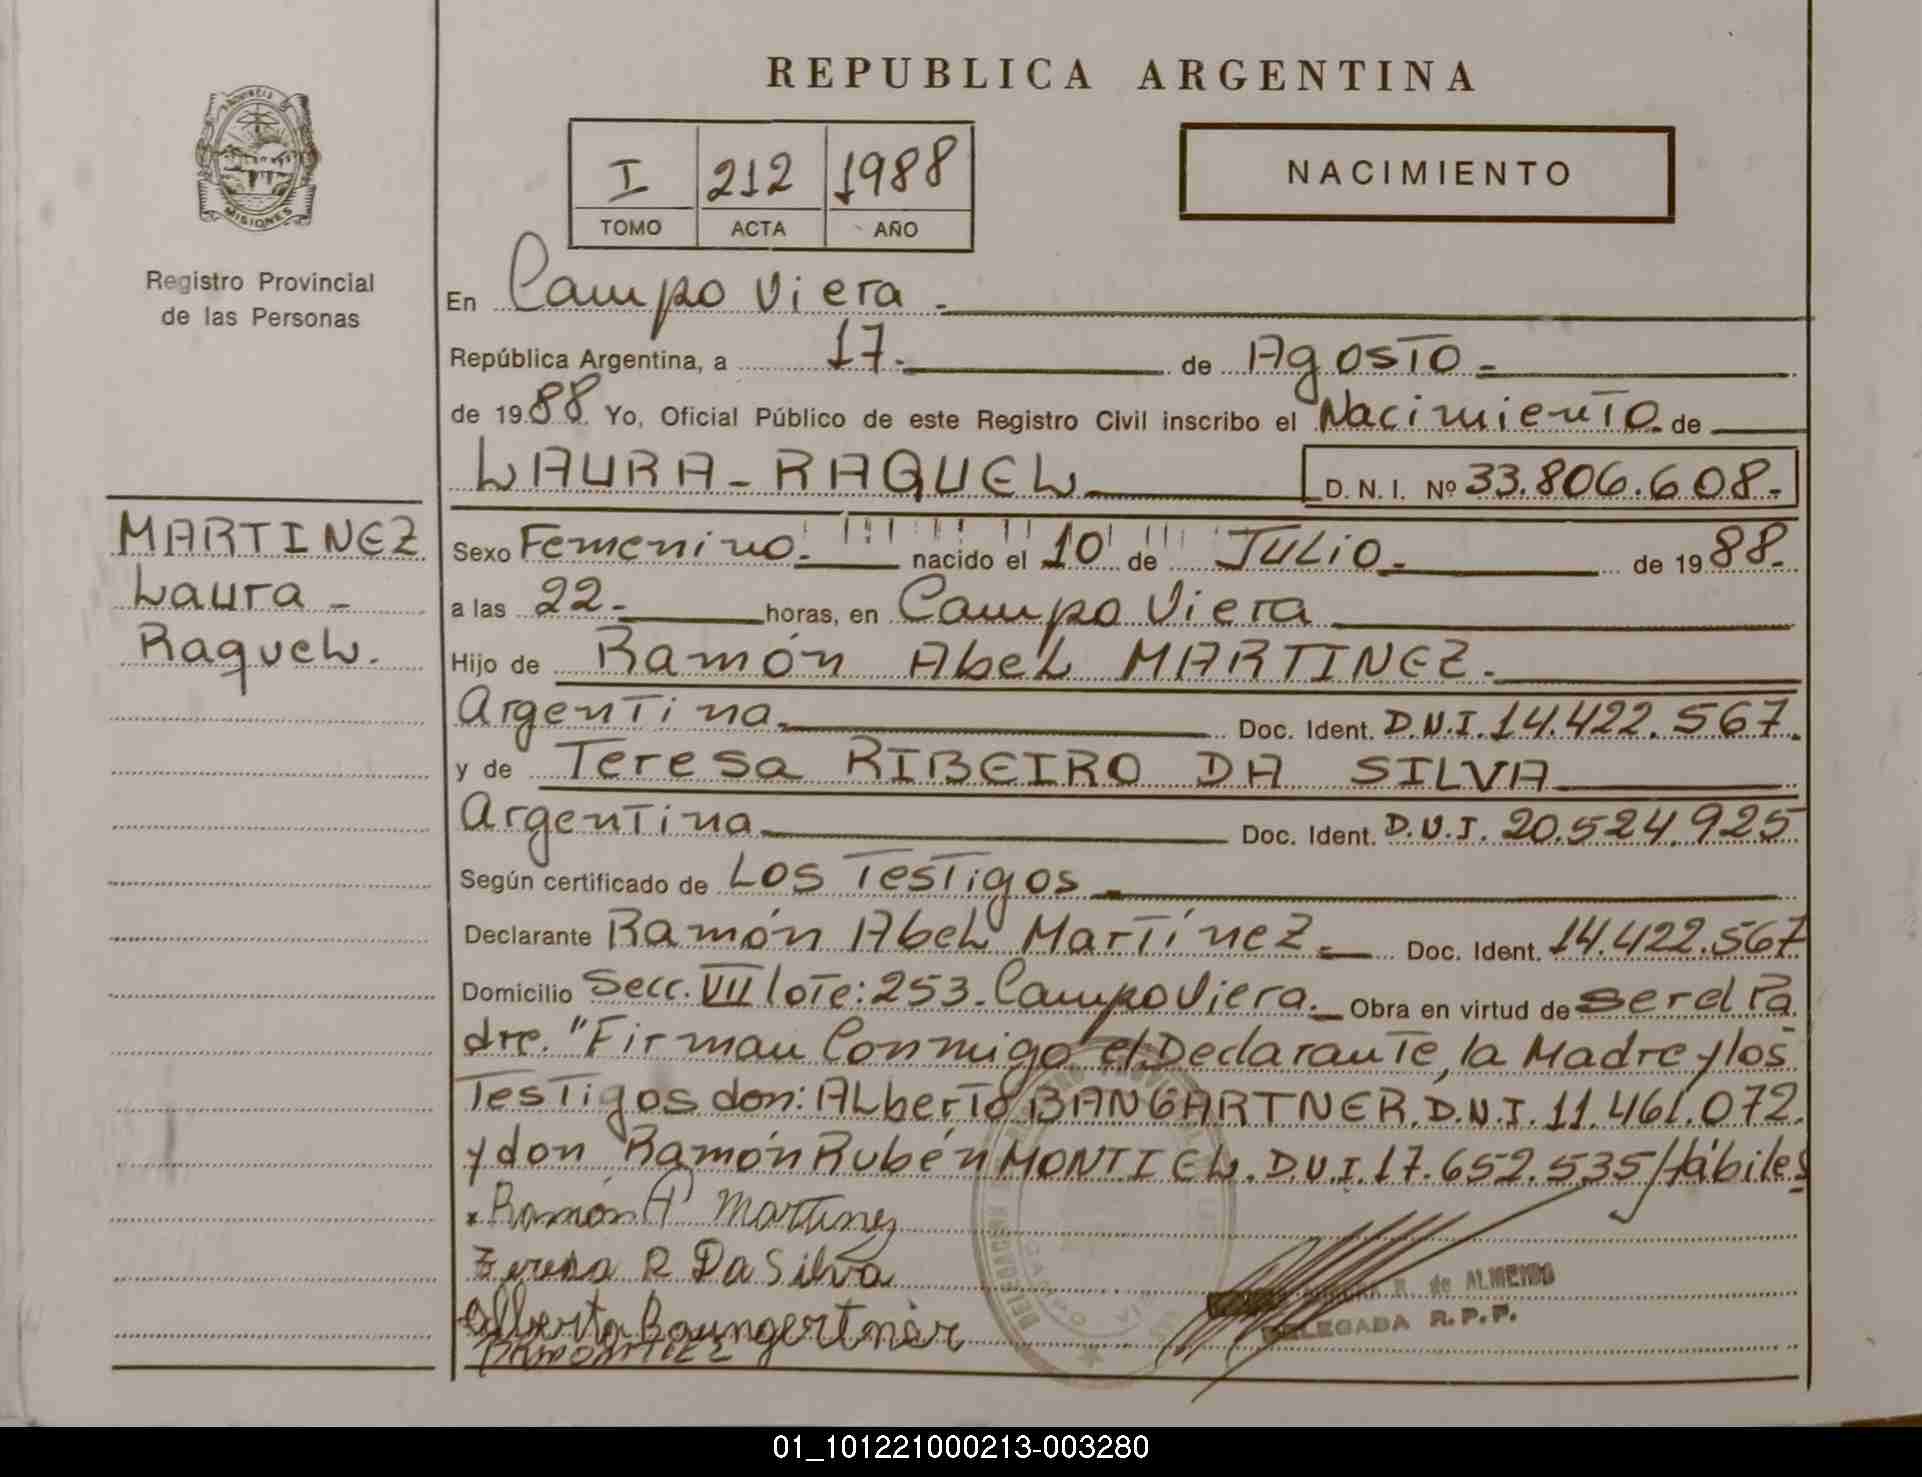 REPUBLICA ARGENTINA
PROVINCIA DE
MISIONES
Registro Provincial
de las Personas
I 212 1988
TOMO ACTA AÑO
NACIMIENTO
En Campo Viera.
República Argentina, a 17. de Agosto.
de 1988. Yo, Oficial Público de este Registro Civil inscribo el Nacimiento de
LAURA - RAQUEL D.N.I. Nº 33.806.608.
MARTINEZ
Laura -
Raquel.
Sexo Femenino. nacido el 10 de JULIO. de 1988.
a las 22. horas, en Campo Viera
Hijo de Ramón Abel MARTINEZ.
Argentina. Doc. Ident. D.N.I. 14.422.567.
y de Teresa RIBEIRO DA SILVA
Argentina Doc. Ident. D.N.I. 20.524.925
Según certificado de Los Testigos
Declarante Ramón Abel Martínez. Doc. Ident. 14.422.567
Domicilio Secc. VII lote: 253. Campo Viera. Obra en virtud de ser el Pa
dre. "Firman Conmigo el Declarante, la Madre y los
Testigos don: ALberto BANGARTNER. D.N.I. 11.461.072.
y don Ramón Rubén MONTIEL. D.N.I. 17.652.535/Hábiles
Ramón A Martinez
Teresa R Da Silva
Alberto Baungertner
R. de ALMEIDA
DELEGADA R.P.P.
01_101221000213-003280